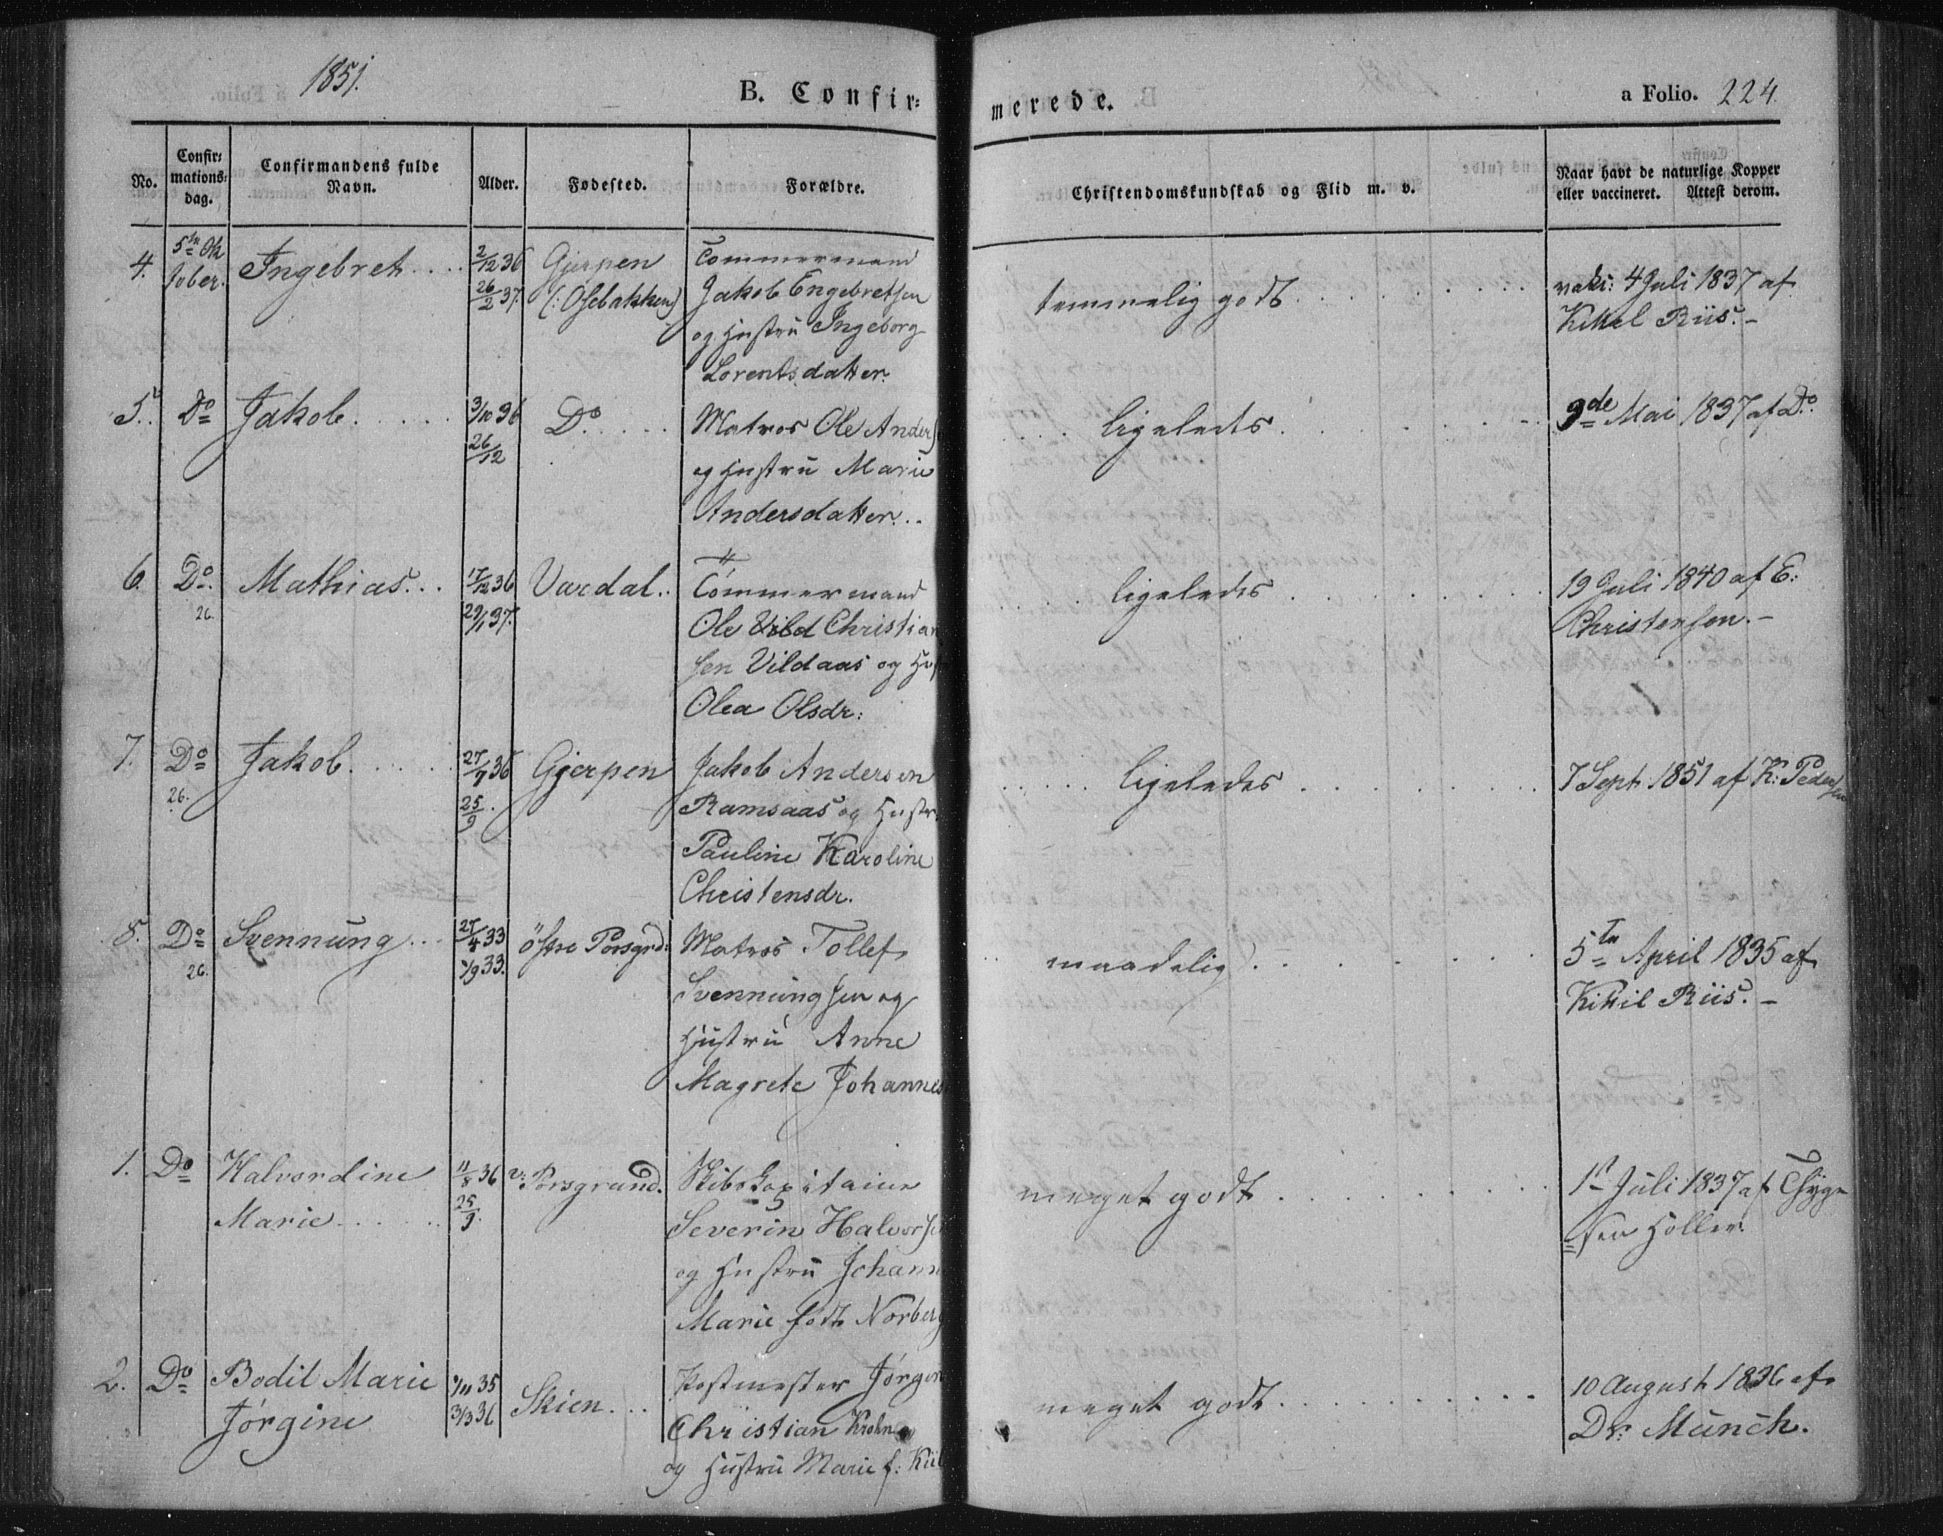 1851.
B. Confir=
merede.
a Folio. 224.
No.
Confir=
mations=
dag.
Confirmandens fulde
Navn.
Alder.
Fødested.
Forældre.
Christendomskundskab og Flid m. v.
Naar havt de naturlige Kopper
eller vaccineret. Attest derom.
4. 5te Ok Ingebret.... 2/12 36 Gjerpen Tømmermand
tober. 26/2 37. (: Osebakken) Jakob Engebretsen
og Hustru Ingeborg
Lorentsdatter.
temmelig godt.......
vaks: 4 Juli 1837 af
Kittel Riis.-
5. Do Jakob..... 3/10 36 Do..... Matros Ole Anders
26/12 og Hustru Marie
Andersdatter...
.... ligeleds.......
9de Mai 1837 af Do.
6. Do. Mathias... 17/12 36 Vardal.. Tømmermand
26. 29/1 37. Ole Vild Christian
sen Vildaas og Hus
Olea Olsdr:
..... ligeledes.......
19 Juli 1840 af E:
Christensen.-
7. Do Jakob...... 27/7 36 Gjerpen Jakob Andersen
26. 25/9. Ramsaas og Hustr.
Pauline Karoline
Christensdr.
..... ligeledes.......
7 Sept. 1851 af K: Peder
sen
8. Do Svennung... 27/4 33 östre Porsgrd: Matros Tollef
26. /9 33. Svennungsen og
Hustru Anne
Magrete Johannes
.. maadelig.......
5te April 1835 af
Kittil Riis.-
1. Do Halvordine 11/8 36 v: Porsgrund. Skibskapitaine
Marie...... 25/9. Severin Halvorse
og Hustru Johann
Marie født Norberg
meget godt.......
1st Juli 1837 af Thyge
sen Holler.
2. Do Bodil Marie /11 35 Skien... Postmester Jørgen
Jørgine 3/3 36 Christian Krohn
og Hustru Marie f: Kiil
meget godt.......
10 August 1836 af
Dr: Münch.